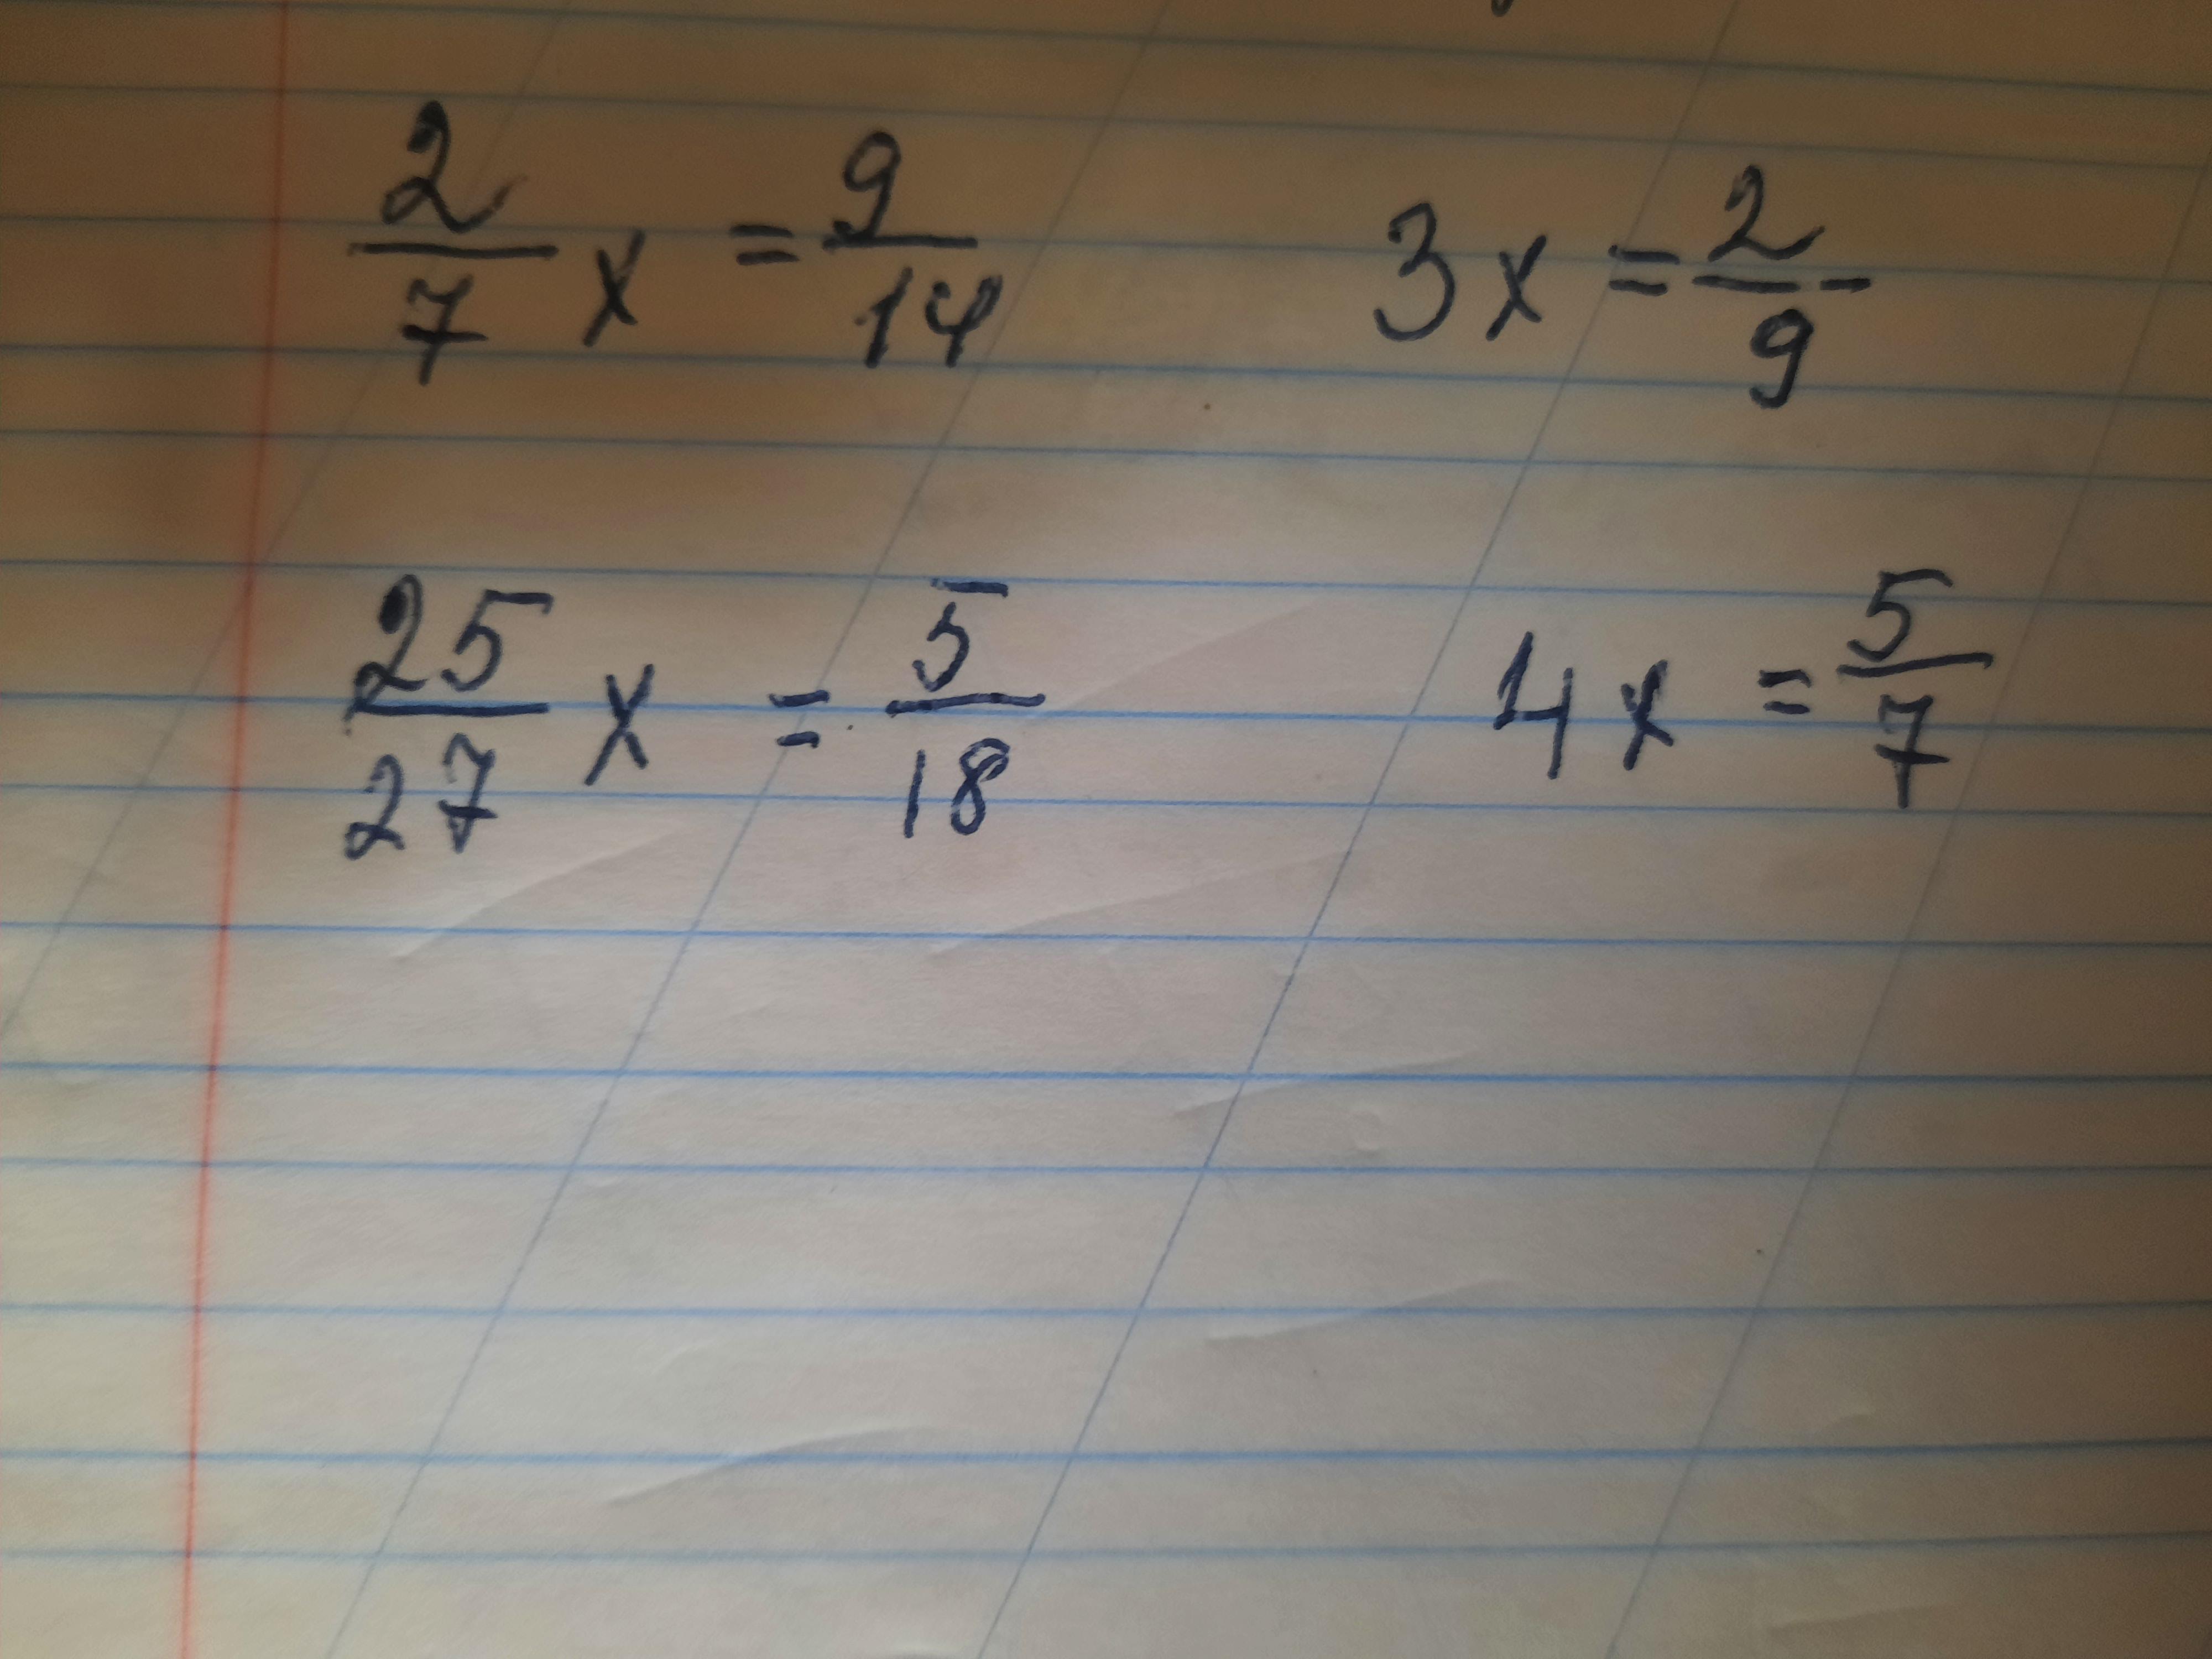 2/7 x = 9/14 3x = 2/9
25/27 x = 5/18 4x = 5/7